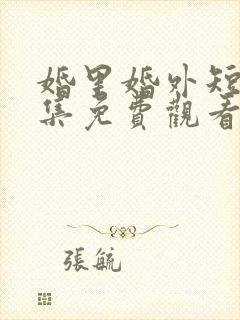 婚里婚外短
集免費觀看
張毓